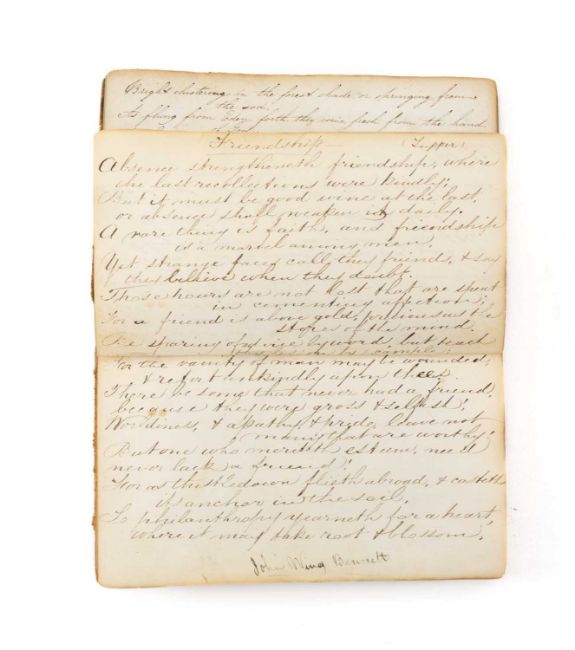 Bright clustering in the forest shade, or springing from
the sod;
As flung from
forth they came fresh from the hand
Friendship (Tupper)
Absence strengtheneth friendship, where
the last recollections were kindly;
But it must be good wine at the last,
or absence shall weaken it daily.
A rare thing is faith, and friendship
is a marvel among men,
Yet strange faces call they friends, & say
they believe when they doubt.
Those hours are not lost that are spent
in cementing affection;
For a friend is above gold, precious as the
stores of the mind.
Be sparing of advice by word, but teach
For the vanity of man may be wounded,
& retort unkindly upon thee.
There be some that never had a friend,
because they were gross & selfish;
Worldliness, & apathy & pride, leave not
many that are worthy:
But one who meriteth esteem, need
never lack a friend;
For as thistledown flieth abroad, & casteth
its anchor in the soil,
So philanthropy yearneth for a heart,
where it may take root & blossom.
John Wing Bennett